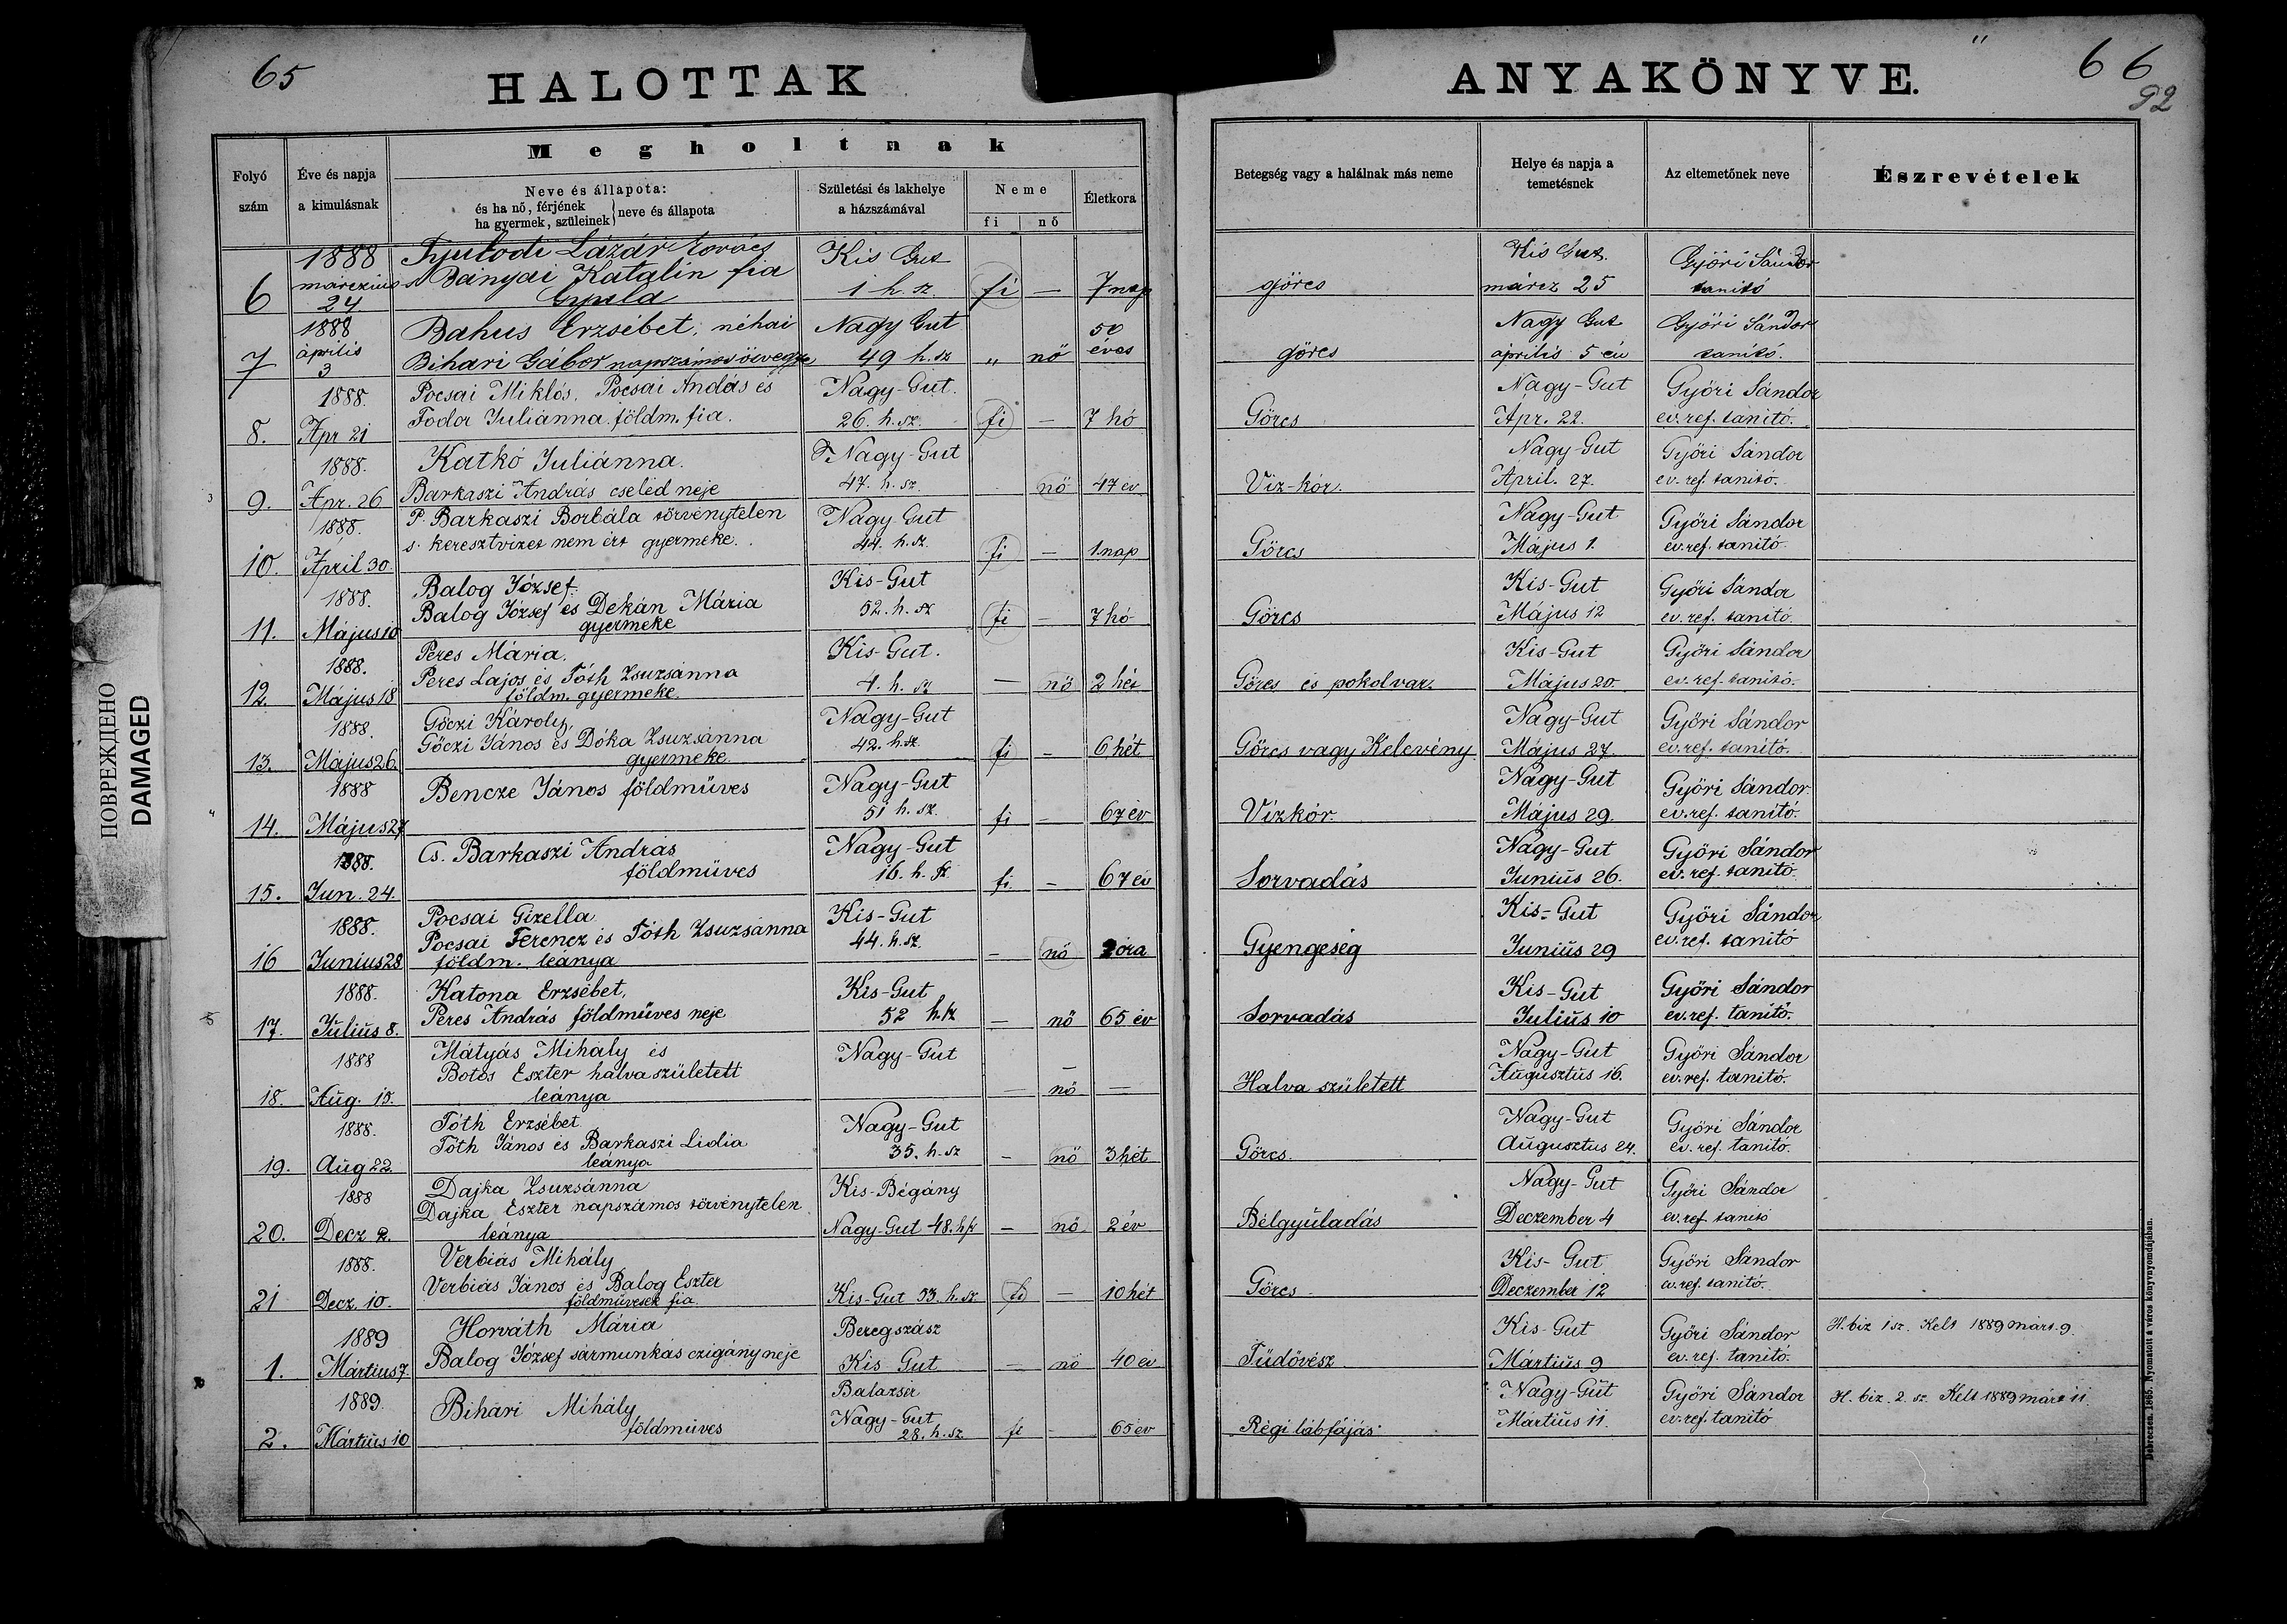 65
HALOTTAK
ANYAKÖNYVE.
66
92
Folyó szám
Éve és napja a kimulásnak
Megholtnak
Neve és állapota:
és ha nő, férjének
ha gyermek, szüleinek
neve és állapota
Születési és lakhelye a házszámával
Neme
fi
nő
Életkora
Betegség vagy a halálnak más neme
Helye és napja a temetésnek
Az eltemetőnek neve
Észrevételek
6
1888
márczius
24
Lázár
Bányai Katalin fia
Gyula
Kis Gut
1 h. sz.
fi
—
7 nap
görcs
Kis Gut.
márcz 25
Győri Sándor
tanitó
7
1888
április
3
Bahus Erzsébet, néhai
Bihari Gábor napszámos özvegye
Nagy Gut
49 h. sz
"
nő
50
éves
görcs
Nagy Gut
április 5 én
Győri Sándor
tanitó.
8.
1888.
Apr 21
Pocsai Miklós, Pocsai András és
Fodor Juliánna földm. fia.
Nagy-Gut.
26. h. sz.
fi
—
7 hó
Görcs
Nagy-Gut
Apr. 22.
Győri Sándor
ev. ref. tanitó.
9.
1888.
Apr. 26
Katkó Juliánna.
Barkaszi András cseléd neje
Nagy-Gut
47. h. sz.
nő
47 év
Viz-kór.
Nagy-Gut
April. 27.
Győri Sándor
ev. ref. tanitó.
10.
1888.
April 30.
P. Barkaszi Borbála törvénytelen
s. keresztvizet nem ért gyermeke.
Nagy Gut
44. h. sz.
fi
—
1. nap
Görcs
Nagy-Gut
Május 1.
Győri Sándor
ev. ref. tanitó.
11.
1888.
Május 10
Balog József.
Balog József és Dekán Mária
gyermeke
Kis-Gut
52. h. sz
fi
—
7 hó
Görcs
Kis-Gut
Május 12
Győri Sándor
ev. ref. tanitó.
12.
1888.
Május 18
Peres Mária.
Peres Lajos és Tóth Zsuzsánna
földm. gyermeke
Kis-Gut.
4. h. sz
—
nő
2 hét
Görcs és pokolvar.
Kis-Gut
Május 20.
Győri Sándor
ev. ref. tanitó.
13.
1888.
Május 26.
Góczi Károly,
Góczi János és Dóka Zsuzsánna
gyermeke.
Nagy-Gut
42. h. sz.
fi
—
6 hét
Görcs vagy Kelevény
Nagy-Gut
Május 27.
Győri Sándor
ev. ref. tanitó.
14.
1888
Május 27
Bencze János földmüves
Nagy-Gut
51 h. sz.
fi
—
67 év
Vízkór.
Nagy-Gut
Május 29.
Győri Sándor.
ev. ref. tanitó.
15.
1888.
Jun. 24.
Cs. Barkaszi András
földmüves
Nagy-Gut
16. h. sz.
fi
—
67 év
Sorvadás
Nagy-Gut
Junius 26.
Győri Sándor
ev. ref. tanitó
16
1888.
Junius 28
Pocsai Gizella
Pocsai Ferencz és Tóth Zsuzsánna
földm. leánya
Kis-Gut
44. h. sz.
—
nő
2 óra
Gyengeség
Kis-Gut
Junius 29
Győri Sándor
ev. ref. tanitó
17.
1888.
Julius 8.
Katona Erzsébet,
Peres András földműves neje
Kis-Gut
52 h. sz
—
nő
65 év
Sorvadás
Kis-Gut
Julius 10
Győri Sándor
ev. ref. tanitó.
18.
1888
Aug. 15.
Mátyás Mihály és
Botos Eszter halva született
leánya
Nagy-Gut
—
—
nő
—
Halva született
Nagy-Gut
Augusztus 16.
Győri Sándor
ev. ref. tanitó.
19.
1888.
Aug 22.
Tóth Erzsébet
Tóth János és Barkaszi Lidia
leánya
Nagy-Gut
35. h. sz
—
nő
3 hét
Görcs.
Nagy-Gut
Augusztus 24.
Győri Sándor
ev. ref. tanitó.
20.
1888
Decz 2.
Dajka Zsuzsánna
Dajka Eszter napszámos törvénytelen
leánya
Kis-Bégány
Nagy-Gut 48. h. sz
—
nő
2 év
Bélgyuladás
Nagy-Gut
Deczember 4
Győri Sándor
ev. ref. tanitó
21
1888.
Decz. 10.
Verbiás Mihály
Verbiás János és Balog Eszter
földművesek fia.
Kis-Gut 53. h. sz.
fi
—
10 hét
Görcs
Kis-Gut
Deczember 12
Győri Sándor
ev. ref. tanitó.
1.
1889
Mártius 7.
Horváth Mária
Balog József sármunkás czigány neje
Beregszász
Kis Gut
—
nő
40 év
Tüdővész
Kis-Gut
Mártius 9
Győri Sándor
ev. ref. tanitó.
H. biz 1 sz. Kelt 1889 márt. 9.
2.
1889.
Mártius 10
Bihari Mihály
földmüves
Balazsér
Nagy-Gut
28. h. sz.
fi
—
65 év
Régi lábfájás
Nagy-Gut
Mártius 11.
Győri Sándor
ev. ref. tanitó
H. biz. 2. sz. Kelt 1889 márt 11.
ПОВРЕЖДЕНО
DAMAGED
Debreczen. 1865. Nyomatott a város könyvnyomdájában.